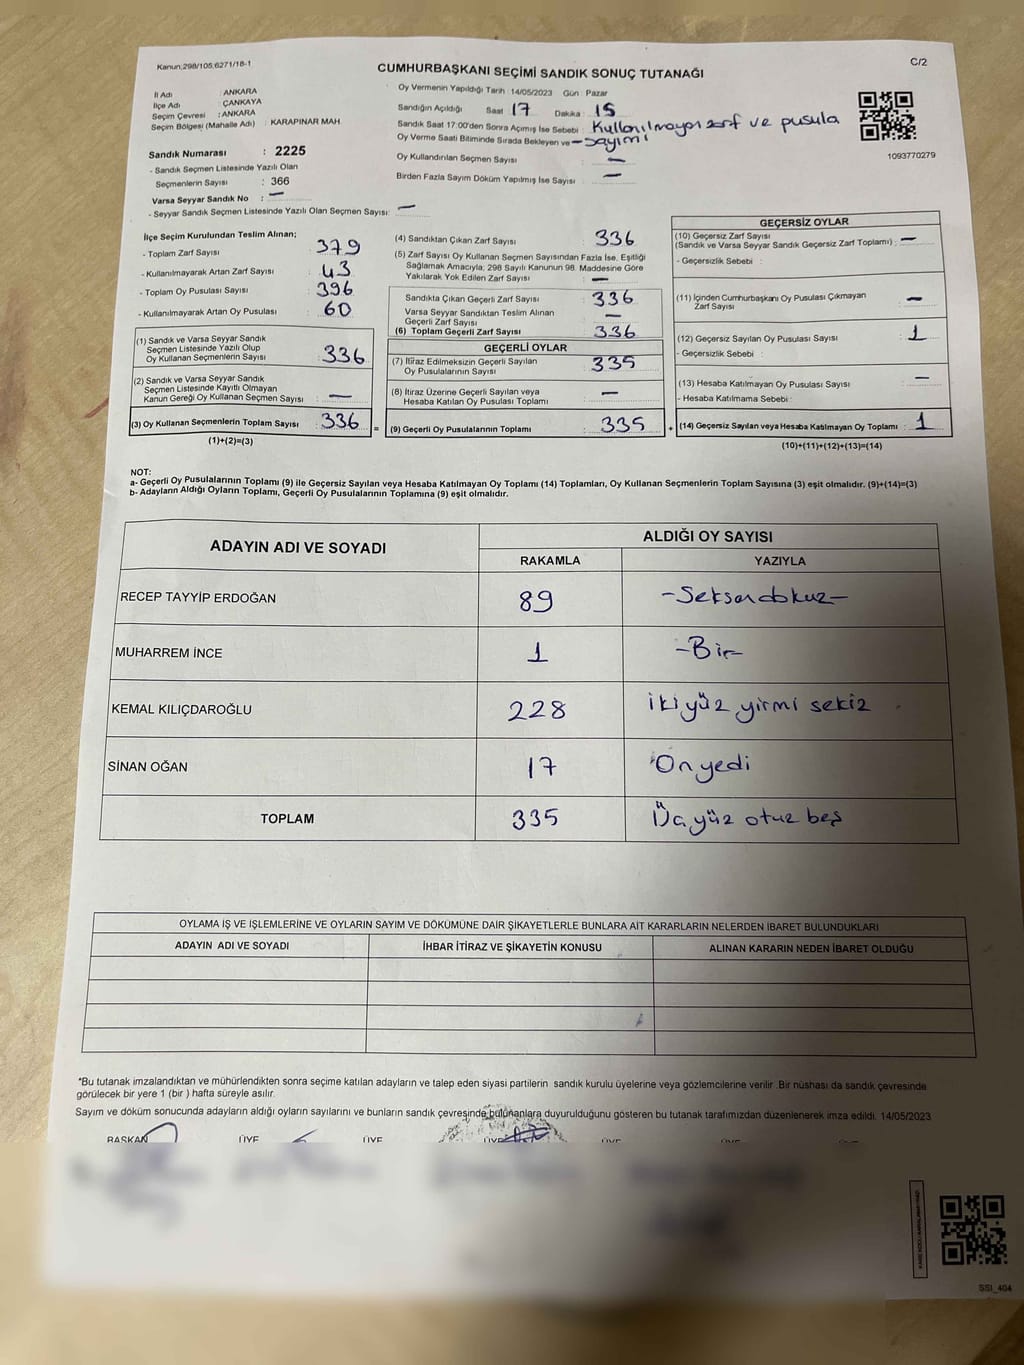 Kanun;298/105;6271/18-1
CUMHURBAŞKANI SEÇİMİ SANDIK SONUÇ TUTANAĞI
C/2
İl Adı : ANKARA
İlçe Adı : ÇANKAYA
Seçim Çevresi : ANKARA
Seçim Bölgesi (Mahalle Adı) : KARAPINAR MAH.
Sandık Numarası : 2225
- Sandık Seçmen Listesinde Yazılı Olan
Seçmenlerin Sayısı : 366
Varsa Seyyar Sandık No : —
- Seyyar Sandık Seçmen Listesinde Yazılı Olan Seçmen Sayısı: —
Oy Vermenin Yapıldığı Tarih : 14/05/2023 Gün : Pazar
Sandığın Açıldığı Saat 17 Dakika 15
Sandık Saat 17:00'den Sonra Açımış İse Sebebi : Kullanılmayan zarf ve pusula
sayımı
Oy Verme Saati Bitiminde Sırada Bekleyen ve
Oy Kullandırılan Seçmen Sayısı : —
Birden Fazla Sayım Döküm Yapılmış İse Sayısı : —
1093770279
İlçe Seçim Kurulundan Teslim Alınan;
- Toplam Zarf Sayısı : 379
- Kullanılmayarak Artan Zarf Sayısı : 43
- Toplam Oy Pusulası Sayısı : 396
- Kullanılmayarak Artan Oy Pusulası : 60
(1) Sandık ve Varsa Seyyar Sandık
Seçmen Listesinde Yazılı Olup
Oy Kullanan Seçmenlerin Sayısı : 336
(2) Sandık ve Varsa Seyyar Sandık
Seçmen Listesinde Kayıtlı Olmayan
Kanun Gereği Oy Kullanan Seçmen Sayısı : —
(3) Oy Kullanan Seçmenlerin Toplam Sayısı : 336
(1)+(2)=(3)
(4) Sandıktan Çıkan Zarf Sayısı : 336
(5) Zarf Sayısı Oy Kullanan Seçmen Sayısından Fazla İse, Eşitliği
Sağlamak Amacıyla; 298 Sayılı Kanunun 98. Maddesine Göre
Yakılarak Yok Edilen Zarf Sayısı : —
Sandıkta Çıkan Geçerli Zarf Sayısı : 336
Varsa Seyyar Sandıktan Teslim Alınan
Geçerli Zarf Sayısı : —
(6) Toplam Geçerli Zarf Sayısı : 336
GEÇERLİ OYLAR
(7) İtiraz Edilmeksizin Geçerli Sayılan
Oy Pusulalarının Sayısı : 335
(8) İtiraz Üzerine Geçerli Sayılan veya
Hesaba Katılan Oy Pusulası Toplamı : —
= (9) Geçerli Oy Pusulalarının Toplamı : 335
GEÇERSİZ OYLAR
(10) Geçersiz Zarf Sayısı
(Sandık ve Varsa Seyyar Sandık Geçersiz Zarf Toplamı) : —
- Geçersizlik Sebebi :
(11) İçinden Cumhurbaşkanı Oy Pusulası Çıkmayan
Zarf Sayısı : —
(12) Geçersiz Sayılan Oy Pusulası Sayısı : 1
- Geçersizlik Sebebi :
(13) Hesaba Katılmayan Oy Pusulası Sayısı : —
- Hesaba Katılmama Sebebi :
+ (14) Geçersiz Sayılan veya Hesaba Katılmayan Oy Toplamı : 1
(10)+(11)+(12)+(13)=(14)
NOT:
a- Geçerli Oy Pusulalarının Toplamı (9) ile Geçersiz Sayılan veya Hesaba Katılmayan Oy Toplamı (14) Toplamları, Oy Kullanan Seçmenlerin Toplam Sayısına (3) eşit olmalıdır. (9)+(14)=(3)
b- Adayların Aldığı Oyların Toplamı, Geçerli Oy Pusulalarının Toplamına (9) eşit olmalıdır.
ADAYIN ADI VE SOYADI ALDIĞI OY SAYISI
RAKAMLA YAZIYLA
RECEP TAYYİP ERDOĞAN 89 -Seksendokuz-
MUHARREM İNCE 1 -Bir-
KEMAL KILIÇDAROĞLU 228 İkiyüz yirmi sekiz
SİNAN OĞAN 17 Onyedi
TOPLAM 335 Üçyüz otuz beş
OYLAMA İŞ VE İŞLEMLERİNE VE OYLARIN SAYIM VE DÖKÜMÜNE DAİR ŞİKAYETLERLE BUNLARA AİT KARARLARIN NELERDEN İBARET BULUNDUKLARI
ADAYIN ADI VE SOYADI İHBAR İTİRAZ VE ŞİKAYETİN KONUSU ALINAN KARARIN NEDEN İBARET OLDUĞU
*Bu tutanak imzalandıktan ve mühürlendikten sonra seçime katılan adayların ve talep eden siyasi partilerin sandık kurulu üyelerine veya gözlemcilerine verilir .Bir nüshası da sandık çevresinde
görülecek bir yere 1 (bir ) hafta süreyle asılır.
Sayım ve döküm sonucunda adayların aldığı oyların sayılarını ve bunların sandık çevresinde bulunanlara duyurulduğunu gösteren bu tutanak tarafımızdan düzenlenerek imza edildi. 14/05/2023
BAŞKAN ÜYE ÜYE ÜYE ÜYE ÜYE
SSI_404